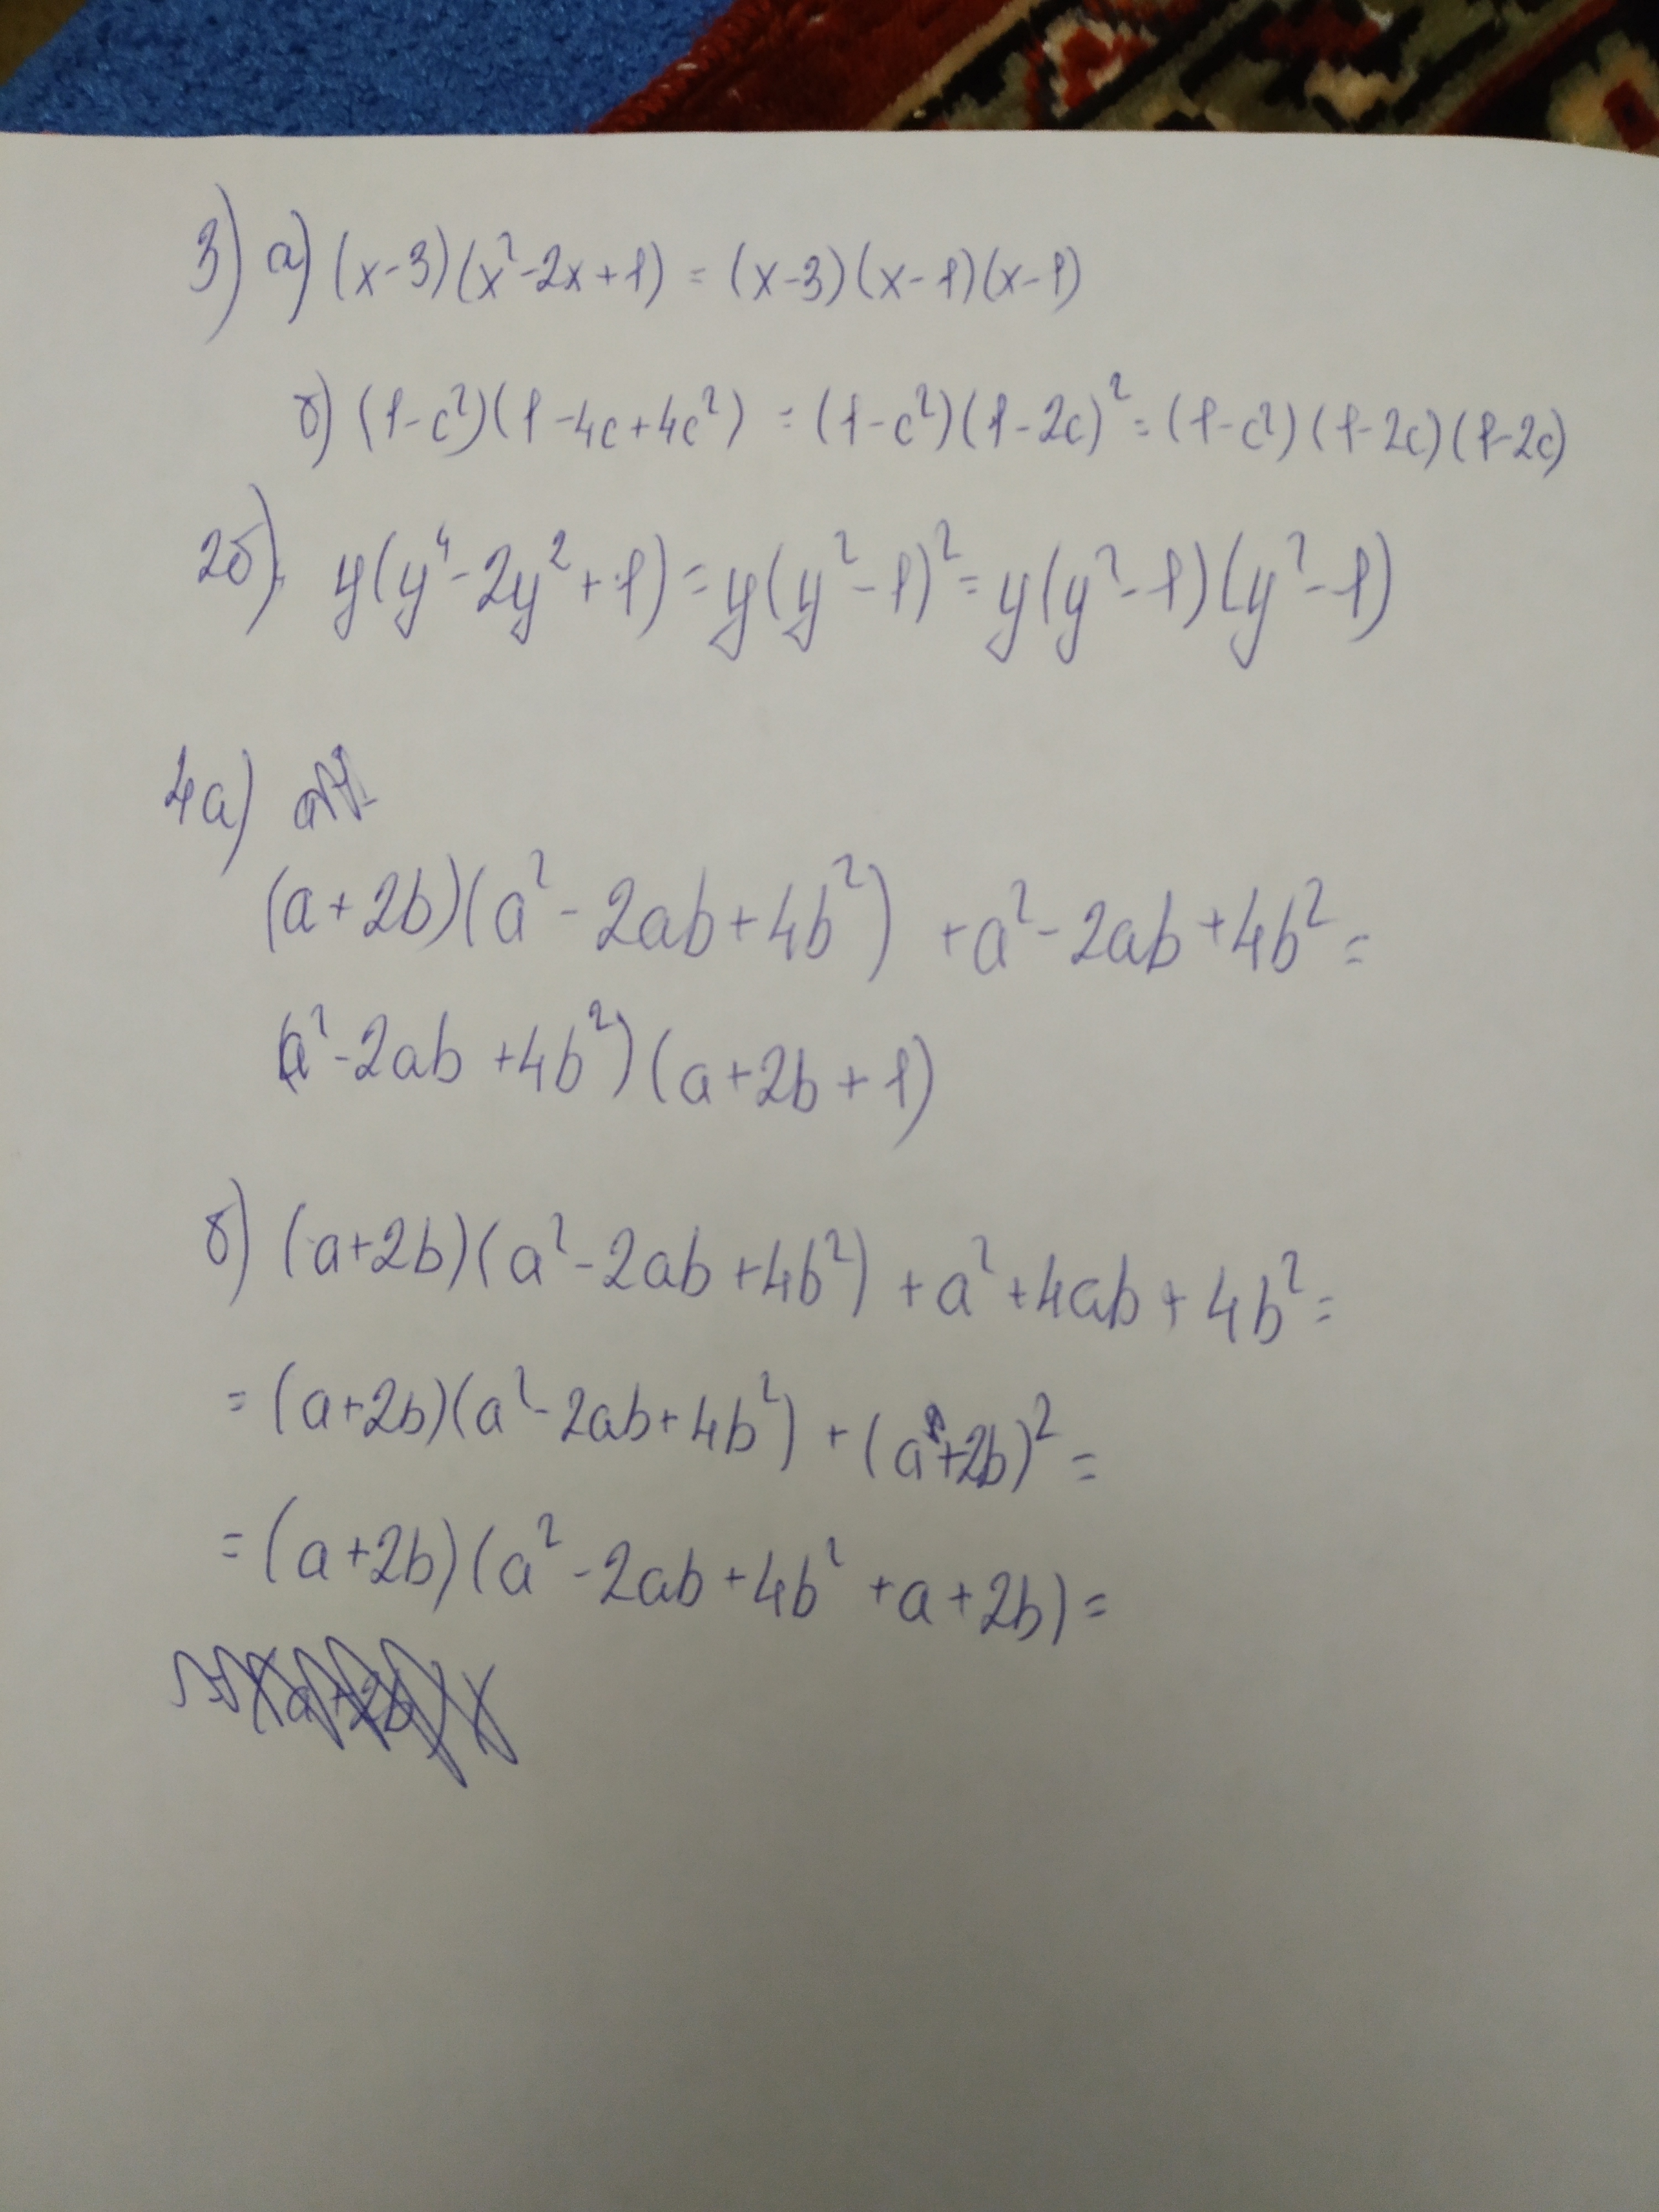 3) а) (x-3)(x²-2x+1) = (x-3)(x-1)(x-1)
б) (1-c²)(1-4c+4c²) = (1-c²)(1-2c)² = (1-c²)(1-2c)(1-2c)
2б) y(y⁴-2y²+1) = y(y²-1)² = y(y²-1)(y²-1)
4а)
(a+2b)(a²-2ab+4b²) +a²-2ab+4b² =
(a²-2ab+4b²)(a+2b+1)
б) (a+2b)(a²-2ab+4b²) +a²+4ab+4b² =
= (a+2b)(a²-2ab+4b²) + (a+2b)² =
= (a+2b)(a²-2ab+4b²+a+2b) =